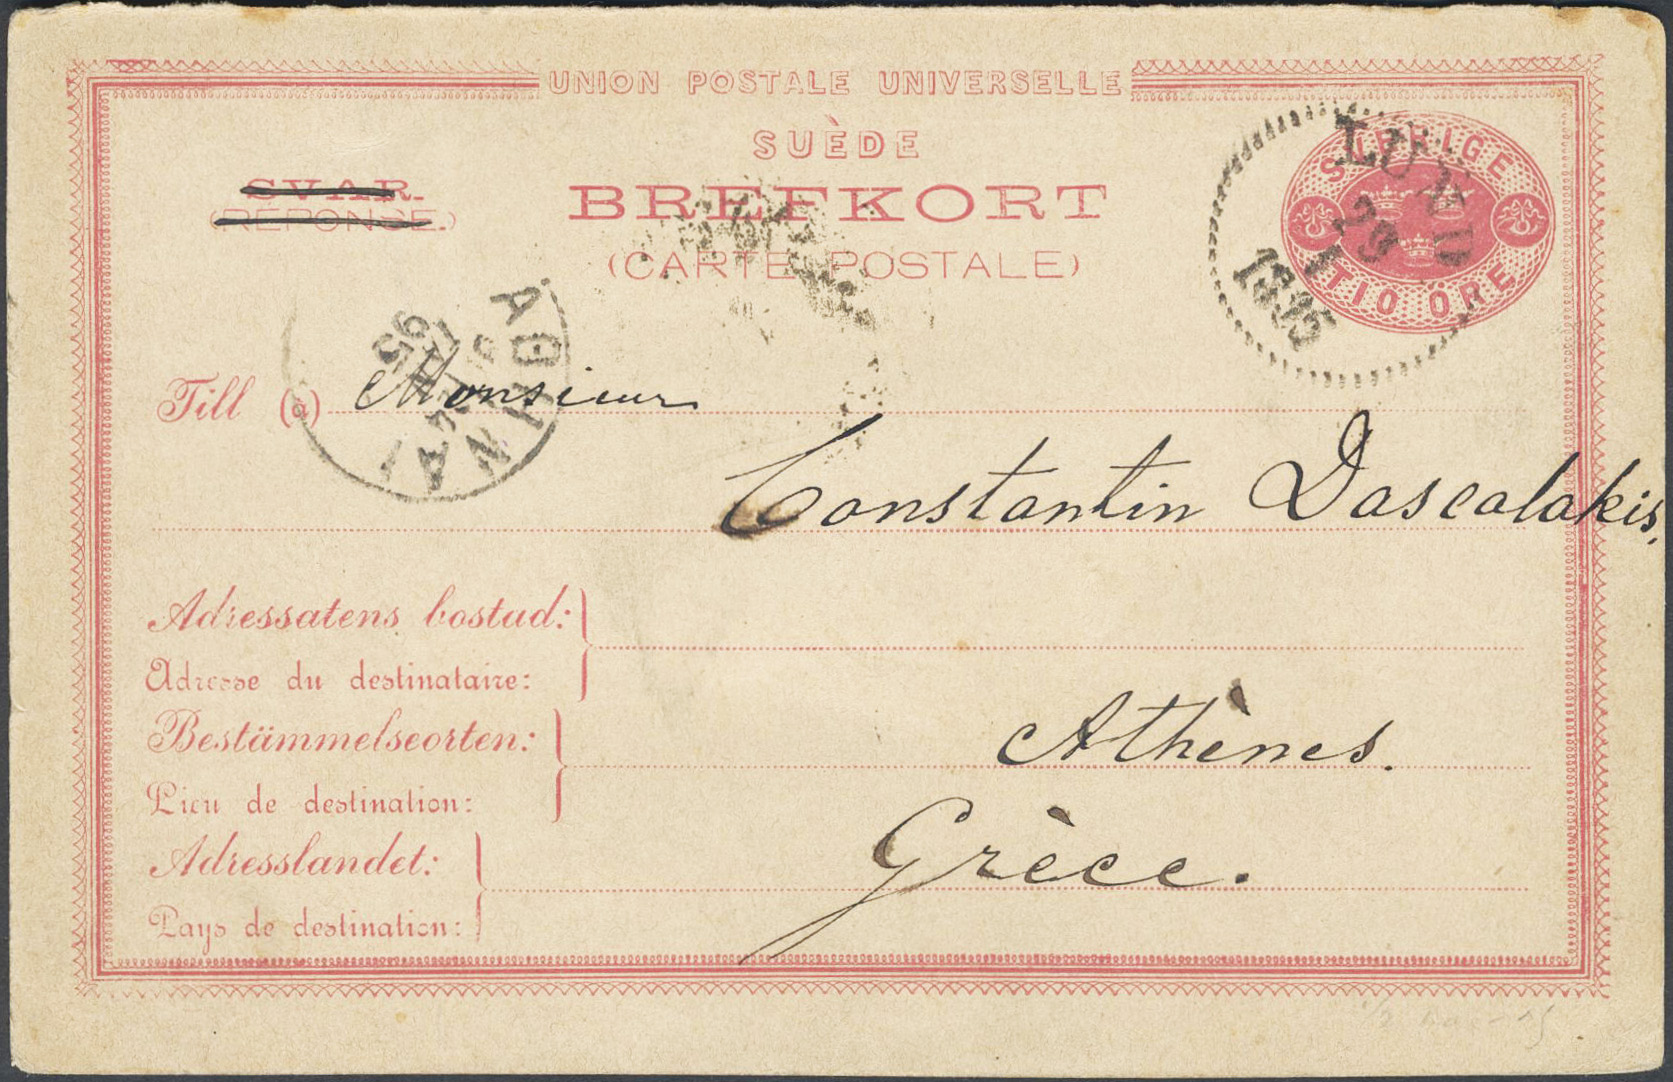 UNION POSTALE UNIVERSELLE
SUÈDE
SVAR.
(RÉPONSE.)
BREFKORT
(CARTE POSTALE)
SVERIGE
TIO ÖRE
LUND
29
1
1895
ΑΘΗΝΑΙ
95
Till (à) Monsieur
Constantin Dascalakis,
Adressatens bostad:
Adresse du destinataire:
Bestämmelseorten:
Athènes.
Lieu de destination:
Adresslandet:
Grèce.
Pays de destination: